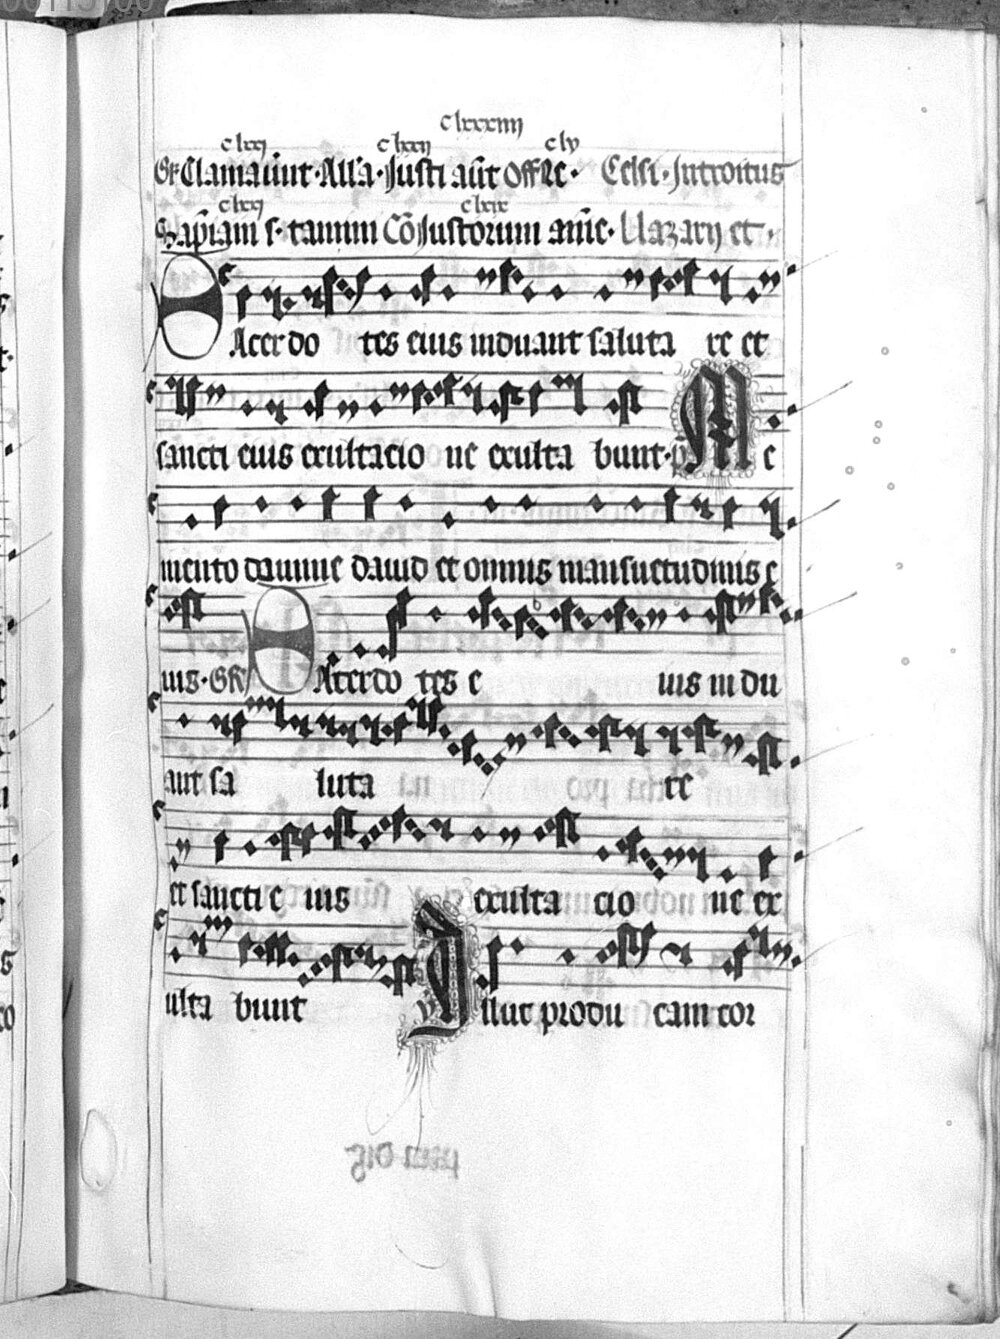 clxxxiiij
clxxj clxxij clv
Gr̄ Clamauer̄nt · All'a · Justi aūt Offr̄e · Celsi · Introitus
clxxj clxix
Sapi̅am s · tamm Cō Justorum anīe · Nazarij et ·
SAcerdo tes eius induant saluta re et
sancti eius exultacio ne exulta bunt · p̄ Me
mento domine dauid et omnis mansuetudinis e
ius · Gr̄ SAcerdo tes e ius indu
ant sa luta re
et sancti e ius exulta cio ne ex
ulta bunt v̄ Illuc produ cam cor